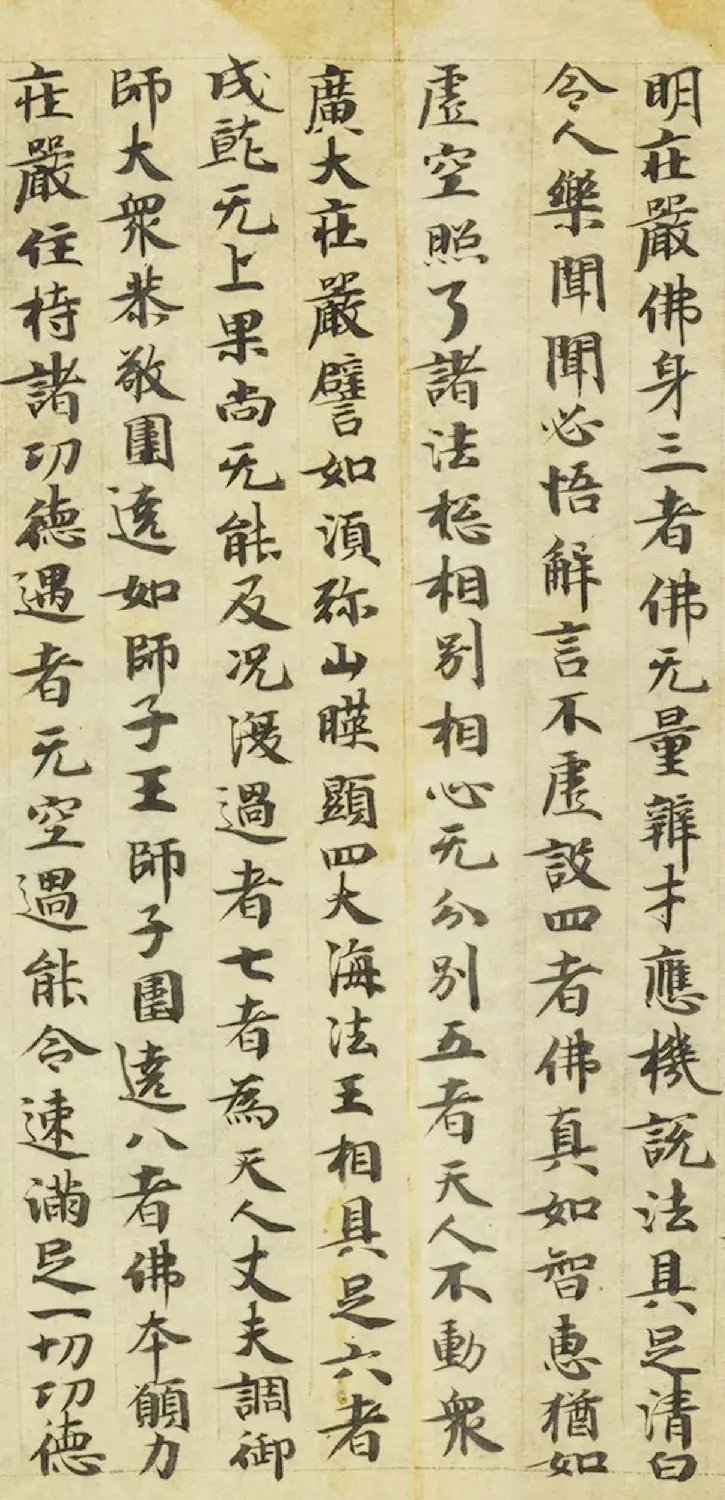 明庄嚴佛身三者佛无量辯才應機說法具足清白
令人樂聞聞必悟解言不虛設四者佛真如智惠猶如
虛空照了諸法揔相別相心无分別五者天人不動衆
廣大庄嚴譬如湏弥山暎顯四大海法王相具足六者
成就无上果尚无能及况復過者七者為天人丈夫調御
師大衆恭敬圍遶如師子王師子圍遶八者佛本願力
庄嚴住持諸功德遇者无空過能令速滿足一切功德